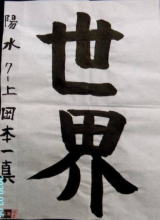 世界
陽水 7-上 岡本一真